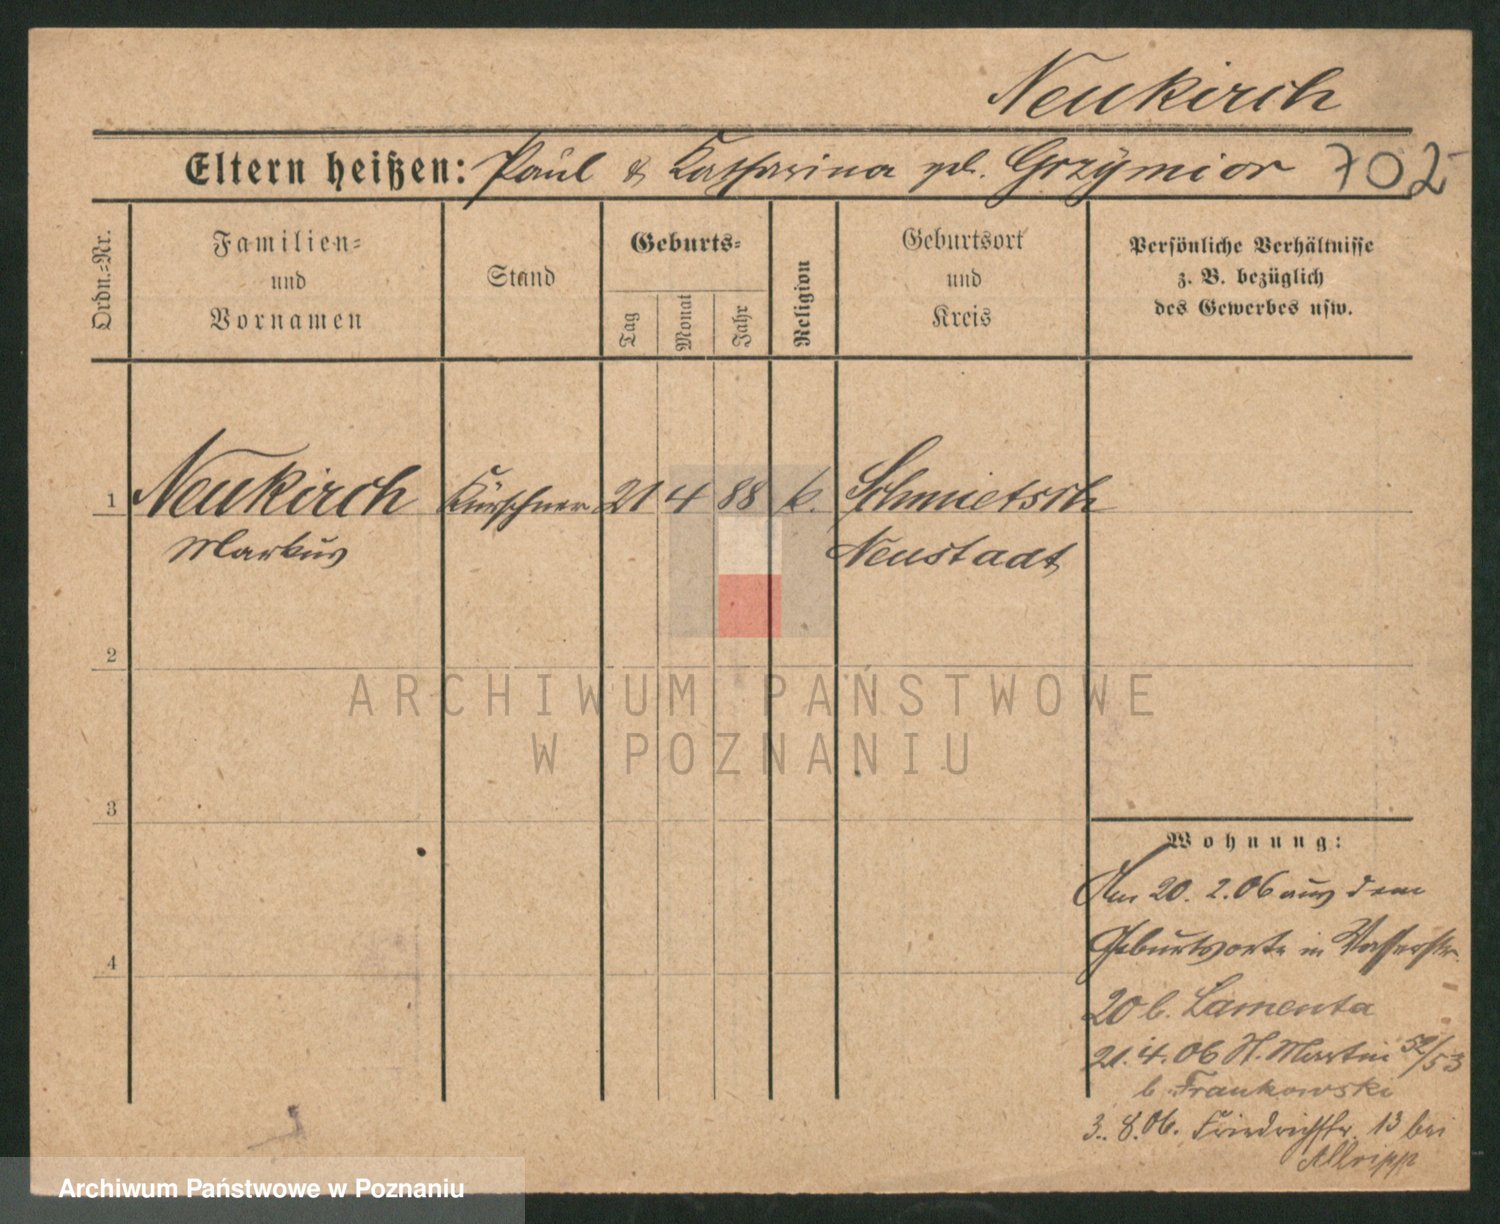 Neukirch
Eltern heißen: Paul & Katharina geb. Grzymior 702
Ordn.=Nr.
Familien=
und
Vornamen
Stand
Geburts=
Tag
Monat
Jahr
Religion
Geburtsort
und
Kreis
Persönliche Verhältnisse
z. B. bezüglich
des Gewerbes usw.
1 Neukirch Kürschner 21 4 88 k. Schmietsch
Markus Neustadt
2
3
4
ARCHIWUM PAŃSTWOWE
W POZNANIU
Wohnung:
Am 20. 2. 06 aus dem
Geburtsorte in Wasserstr.
20 b. Lamenta
21. 4. 06 St. Martin 52/53
b. Frankowski
3. 8. 06. Friedrichstr. 13 bei
Archiwum Państwowe w Poznaniu